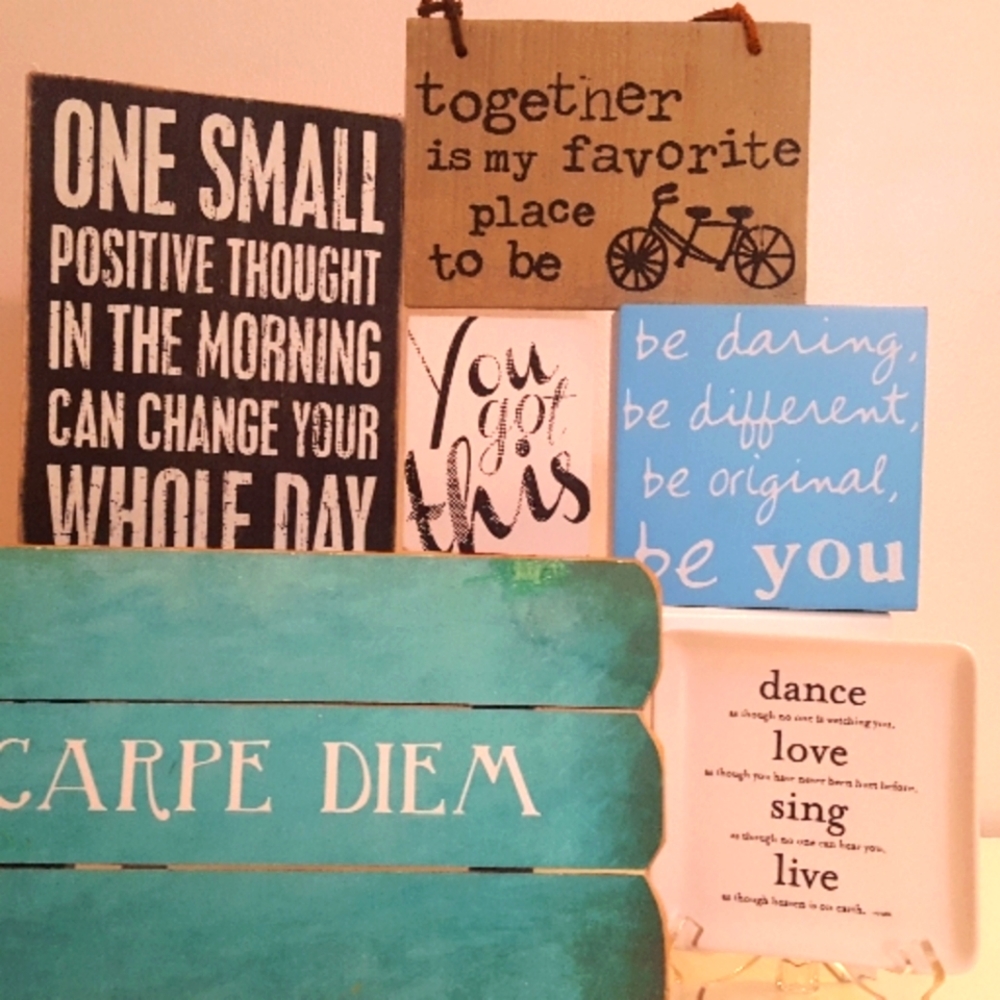 ONE SMALL
POSITIVE THOUGHT
IN THE MORNING
CAN CHANGE YOUR
WHOLE DAY
together
is my favorite
place
to be
You
got
this
be daring,
be different,
be original,
be you
CARPE DIEM
dance
as though no one is watching you,
love
as though you have never been hurt before,
sing
as though no one can hear you,
live
as though heaven is on earth.